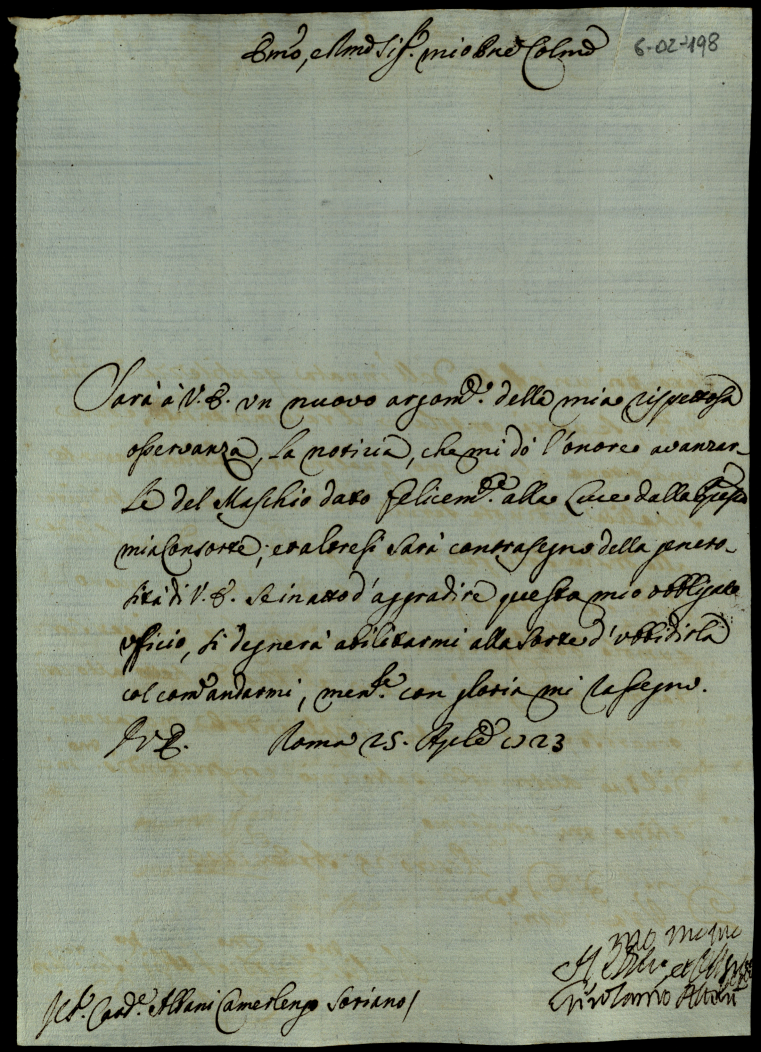 Em̃o, e Rmo Sig.r mio Pne Colmo
6-02-198
Sarà à V. E. un nuovo argom.to della mia rispettosa
osservanza, la notizia, che mi dò l'onore avanzar-
le del Maschio dato felicem.te alla Luce dalla
mia Consorte; et altresì sarà contrasegno della genero-
sità di V. E. se in atto d'aggradire questo mio obbligato
officio, si degnerà abilitarmi alla sorte d'ubbidirla
col com̃andarmi, men.e con gloria mi rassegno.
D. V. E. Roma 25. Aple 1723
mo
Girolamo Altieri
S.r Card.e Albani Camerlengo Soriano/